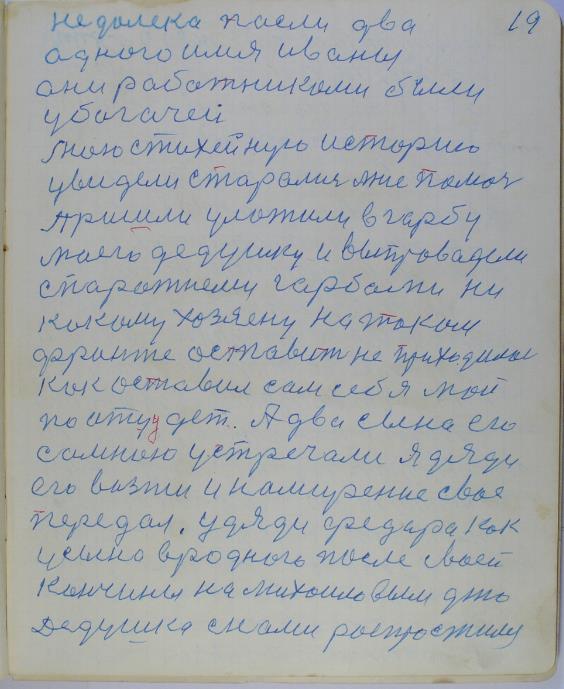 19
недалека пасли два
одного имя иваны
ани работникоми были
убогачей
мою стихейную историю
увидели старались мне помоч
пришли уложили вгарбу
моего дедушку и выпровадели
старожнему гарбами ни
кокому хозяену натоком
фронте оставит не приходилос
кокоставил сам себя мой
по
дет. А два сына его
самною устречали я дяди
его возжи и намирение свое
передал. удяди федара кок
усына вродного после своей
кончины на михоиловым
дедушка снами роспростилися